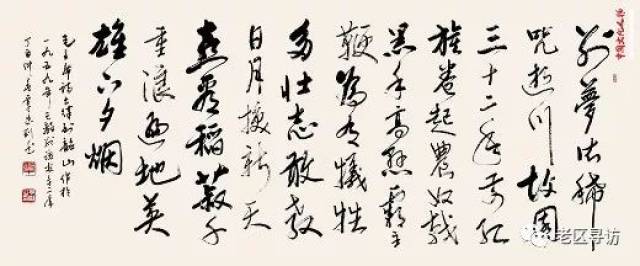 中国文化人物
别夢依稀
咒逝川故園
三十二年前红
旗卷起農奴戟
黑手高悬霸主
鞭為有犧牲
多壮志敢教
日月換新天
喜看稻菽千
重浪遍地英
雄下夕烟
毛主席詩七律到韶山作於
一九五九年
丁酉仲春
老区寻访